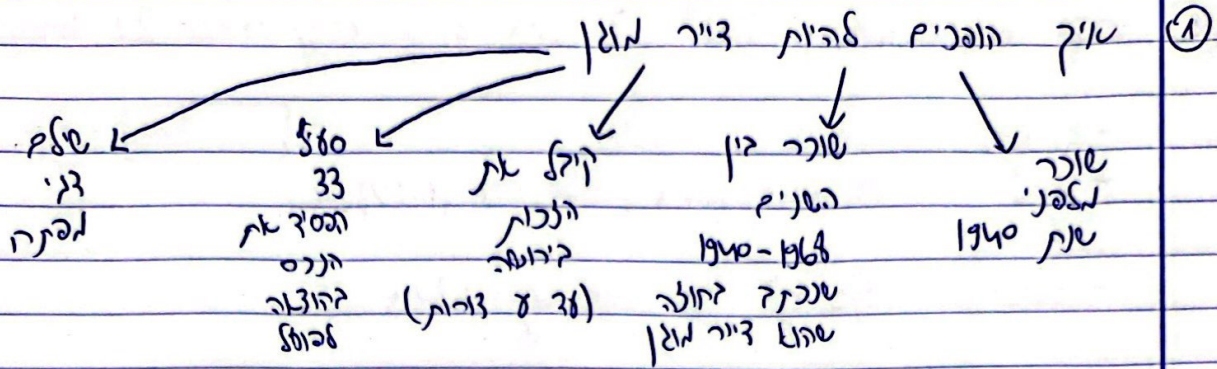 ① איך הופכים להיות דייר מוגן
שוכר
מלפני
שנת 1940
שוכר בין
השנים
1940-1968
שנכתב בחוזה
שהוא דייר מוגן
קיבל את
הזכות
בירושה
(עד דורות)
סעיף
33
הפסיד את
הנכס
בהוצאה
לפועל
שילם
דמי
מפתח